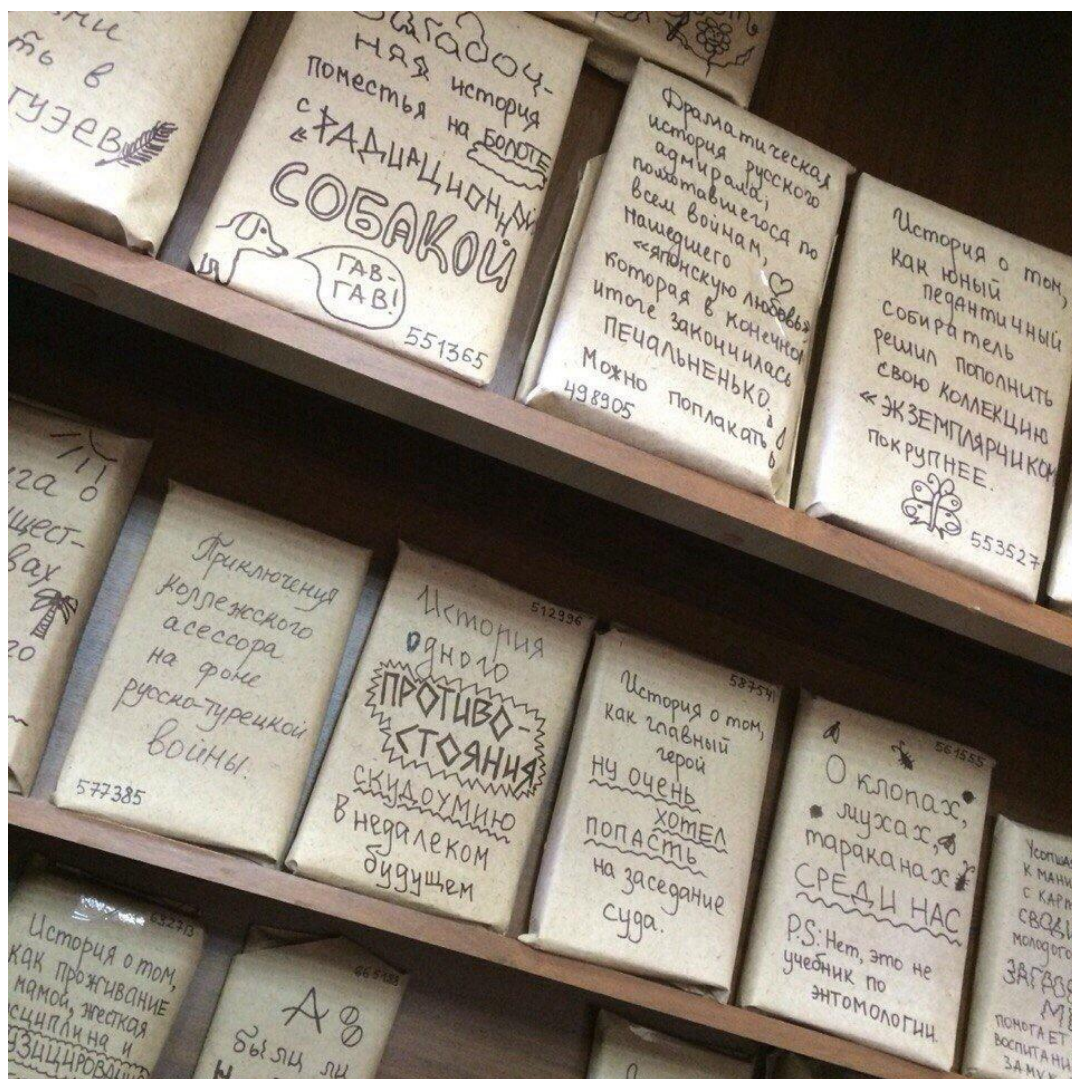 ть в
Загадоч-
ная история
поместья на болоте
с "радиационной
СОБАКОЙ
ГАВ-
ГАВ!
551365
Драматическая
история русского
адмирала,
помотавшегося по
всем войнам,
нашедшего
«японскую любовь»,
которая в конечном
итоге закончилась
ПЕЧАЛЬНЕНЬКО.
Можно поплакать
498905
История о том,
как юный
педантичный
собиратель
решил пополнить
свою коллекцию
«ЭКЗЕМПЛЯРЧИКОМ
покрупнее.
553527
Приключения
коллежского
асессора
на фоне
русско-турецкой
войны.
577385
512996
История
одного
ПРОТИВО-
СТОЯНИЯ
СКУДОУМИЮ
в недалеком
будущем
58754
История о том,
как главный
герой
ну очень
хотел
попасть
на заседание
суда.
561555
О клопах,
мухах,
тараканах
СРЕДИ НАС
P.S. Нет, это не
учебник по
энтомологии.
к мани
с карт
молодого
помогает
воспитани
замуж
632713
История о том,
как проживание
мамой, жесткая
сциплина и
А
были ли